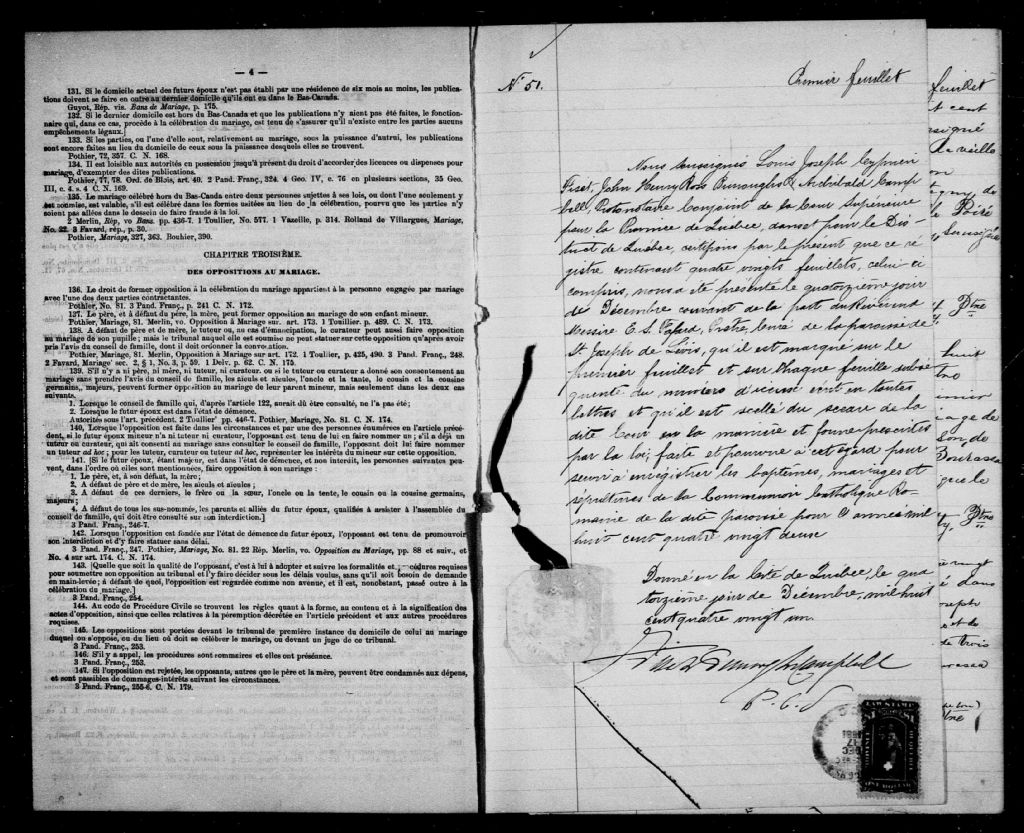 — 4 —
131. Si le domicile actuel des futurs époux n'est pas établi par une résidence de six mois au moins, les publica-
tions doivent se faire en outre au dernier domicile qu'ils ont eu dans le Bas-Canada.
Guyot, Rép. vis. Bans de Mariage, p. 175.
132. Si le dernier domicile est hors du Bas-Canada et que les publications n'y aient pas été faites, le fonction-
naire qui, dans ce cas, procède à la célébration du mariage, est tenu de s'assurer qu'il n'existe entre les parties aucuns
empêchements légaux.]
133. Si les parties, ou l'une d'elle sont, relativement au mariage, sous la puissance d'autrui, les publications
sont encore faites au lieu du domicile de ceux sous la puissance desquels elles se trouvent.
Pothier, 72, 357. C. N. 168.
134. Il est loisible aux autorités en possession jusqu'à présent du droit d'accorder des licences ou dispenses pour
mariage, d'exempter des dites publications.
Pothier, 77, 78. Ord. de Blois, art. 40. 2 Pand. Franç., 324. 4 Geo. IV, c. 76 en plusieurs sections, 35 Geo.
III, c. 4. s. 4 C. N. 169.
135. Le mariage célébré hors du Bas-Canda entre deux personnes sujettes à ses lois, ou dont l'une seulement y
est soumise, est valable, s'il est célébré dans les formes usitées au lieu de la célébration, pourvu que les parties n'y
soient pas allées dans le dessein de faire fraude à la loi.
2 Merlin, Rép, vo Bans. pp. 436-7. 1 Toulier, No. 577. 1 Vazeille, p. 314. Rolland de Villargues, Mariage,
No. 22. 3 Favard, rép., p. 30.
Pothier, Mariage, 327, 363. Bouhier, 390.
CHAPITRE TROISIÈME.
DES OPPOSITIONS AU MARIAGE.
136. Le droit de former opposition à la célébration du mariage appartient à la personne engagée par mariage
avec l'une des deux parties contractantes.
Pothier, No. 81. 3 Pand. Franç., p. 241 C. N. 172.
137. Le père, et à défaut du père, la mère, peut former opposition au mariage de son enfant mineur.
Pothier, Mariage, 81. Merlin, vo. Opposition à Mariage sur. art. 173. 1 Touillier. p. 489. C. N. 173.
138. A défaut de père et de mère, le tuteur ou, au cas d'émancipation, le curateur peut aussi faire opposition
au mariage de son pupille; mais le tribunal auquel elle est soumise ne peut statuer sur cette opposition qu'après avoir
pris l'avis du conseil de famille, dont il doit ordonner la convocation.
Pothier, Mariage, 81. Merlin, Opposition à Mariage sur art. 172. 1 Toulier, p. 425, 490. 3 Pand. Franç., 248.
2 Favard, Mariage' sec. 2, § 1, No. 3, p. 59. 1 Delv. p. 62. C. N. 175.
139. S'il n'y a ni père, ni mère, ni tuteur, ni curateur, ou si le tuteur ou curateur a donné son consentement au
mariage sans prendre l'avis du conseil de famille, les aïeuls et aïeules, l'oncle et la tante, le cousin et la cousine
germains,, majeurs, peuvent former opposition au mariage de leur parent mineur, mais seulement dans les deux cas
suivants.
1. Lorsque le conseil de famille qui, d'après l'article 122, aurait dû être consulté, ne l'a pas été;
2. Lorsque le futur époux est dans l'état de démence.
Autorités sous l'art. précédent. 2 Toullier' pp. 446-7. Pothier, Mariage, No. 81. C. N. 174.
140, Lorsque l'opposition est faite dans les circonstances et par une des personnes énumérées en l'article précé-
dent, si le futur époux mineur n'a ni tuteur ni curateur, l'opposant est tenu de lui en faire nommer un; s'il a déjà un
tuteur ou curateur, qui ait consenti au mariage sans consulter le conseil de famille, l'opposant doit lui faire nommer
un tuteur ad hoc; pour les tuteur, curateur ou tuteur ad hoc, représenter les intérêts du mineur sur cette opposition.
141. [Si le futur époux, étant majeur, est dans l'état de démence, et non interdit, les personnes suivantes peu-
vent, dans l'ordre où elles sont mentionnées, faire opposition à son mariage:
1. Le père, et, à son défaut, la mère;
2. A défaut de père et de mère, les aïeuls et aïeules;
3. A défaut de ces derniers, le frère ou la sœur, l'oncle ou la tente, le cousin ou la cousine germains,
majeurs;
4. A défaut de tous les sus-nommés, les parents et alliés du futur époux, qualifiés à assister à l'assemblée du
conseil de famille, qui doit être consulté sur son interdiction.]
3 Pand. Franç., 246-7.
142. Lorsque l'opposition est fondée sur l'état de démence du futur époux, l'opposant est tenu de promouvoir
son interdiction et d'y faire statuer sans délai.
3 Pand. Franç., 247. Pothier, Mariage, No. 81. 22 Rép. Merlin, vo. Opposition au Mariage, pp. 88 et suiv., et
No. 4 sur art. 174. C. N. 174.
143. [Quelle que soit la qualité de l'opposant, c'est à lui à adopter et suivre les formalités et procédures requises
pour soumettre son opposition au tribunal et l'y faire décider sous les délais voulus, sans qu'il soit besoin de demande
en main-levée; à défaut de quoi, l'opposition est regardée comme non avenue, et il est, nonobstant, passé outre à la
célébration du mariage.]
3 Pand. Franç., 254.
144. Au code de Procédure Civile se trouvent les règles quant à la forme, au contenu et à la signification des
actes d'opposition, ainsi que celles relatives à la péremption décrétée en l'article précédent et aux autres procédures
requises.
145. Les oppositions sont portées devant le tribunal de première instance du domicile de celui au mariage
duquel on s'oppose, ou du lieu où doit se célébrer le mariage, ou devant un juge de ce tribunal.
3 Pand. Franç., 253.
146. S'il y a appel, les procédures sont sommaires et elles ont préséance.
3 Pand. Franç., 253.
147. Si l'opposition est rejetée, les opposants, autres que le père et la mère, peuvent être condamnés aux dépens,
et sont passibles de dommages-intérêts suivant les circonstances.
3 Pand. Franç., 255-6. C. N. 179.
No 51.
Premier feuillet
Nous Soussignés Louis Joseph Cyprien
Fiset, John Henry Ross Burroughs & Archibald Camp
bell, Protonotaire Conjoint de la Cour Supérieure
pour la Province de Québec, dans et pour le Dis
trict de Québec, certifions par le présent que ce re
gistre contenant quatre vingts feuillets, celui ci
compris, nous a été présenté le quatorzième jour
de Décembre courant de la part du Révérend
Messire E. S. Fafard, Prêtre, Curé de la paroisse de
St. Joseph de Lévis, qu'il est marqué sur le
premier feuillet et sur chaque feuille subsé
quente du numéro d'icelui écrit en toutes
lettres et qu'il est scellé du sceau de la
dite Cour en la manière et forme prescrites
par la loi, faite et pourvue à cet égard pour
servir à enregistrer les baptêmes, mariages et
sépultures de la Communion Catholique Ro-
maine de la dite paroisse pour l'année mil
huit cent quatre vingt deux
Donné en la Cité de Québec, le qua
torzième jour de Décembre, mil huit
cent quatre vingt un.
Fiset Burroughs Campbell
P. C. S
LAW STAMP
$1 $1
QUEBEC
ONE DOLLAR
DEC
17
1881
feuillet
cent
huit
iage de
Ptre